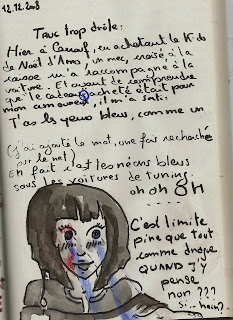 12.12.2008
Truc trop drôle :
Hier à Carref, en achetant le Kdo
de Noël d'Amo, un mec, croisé à la
caisse m'a raccompagnée à la
voiture. Et avant de comprendre
que le cadeau acheté était pour
mon amoureux, il m'a sorti :
T'as les yeux bleus, comme un
(j'ai ajouté le mot, une fois recherché
sur le net)
En fait c'est les néons bleus
sous les voitures de tuning.
oh oh OH
C'est limite
pire que tout
comme drague
QUAND J'Y
pense
non ???
si... hein?